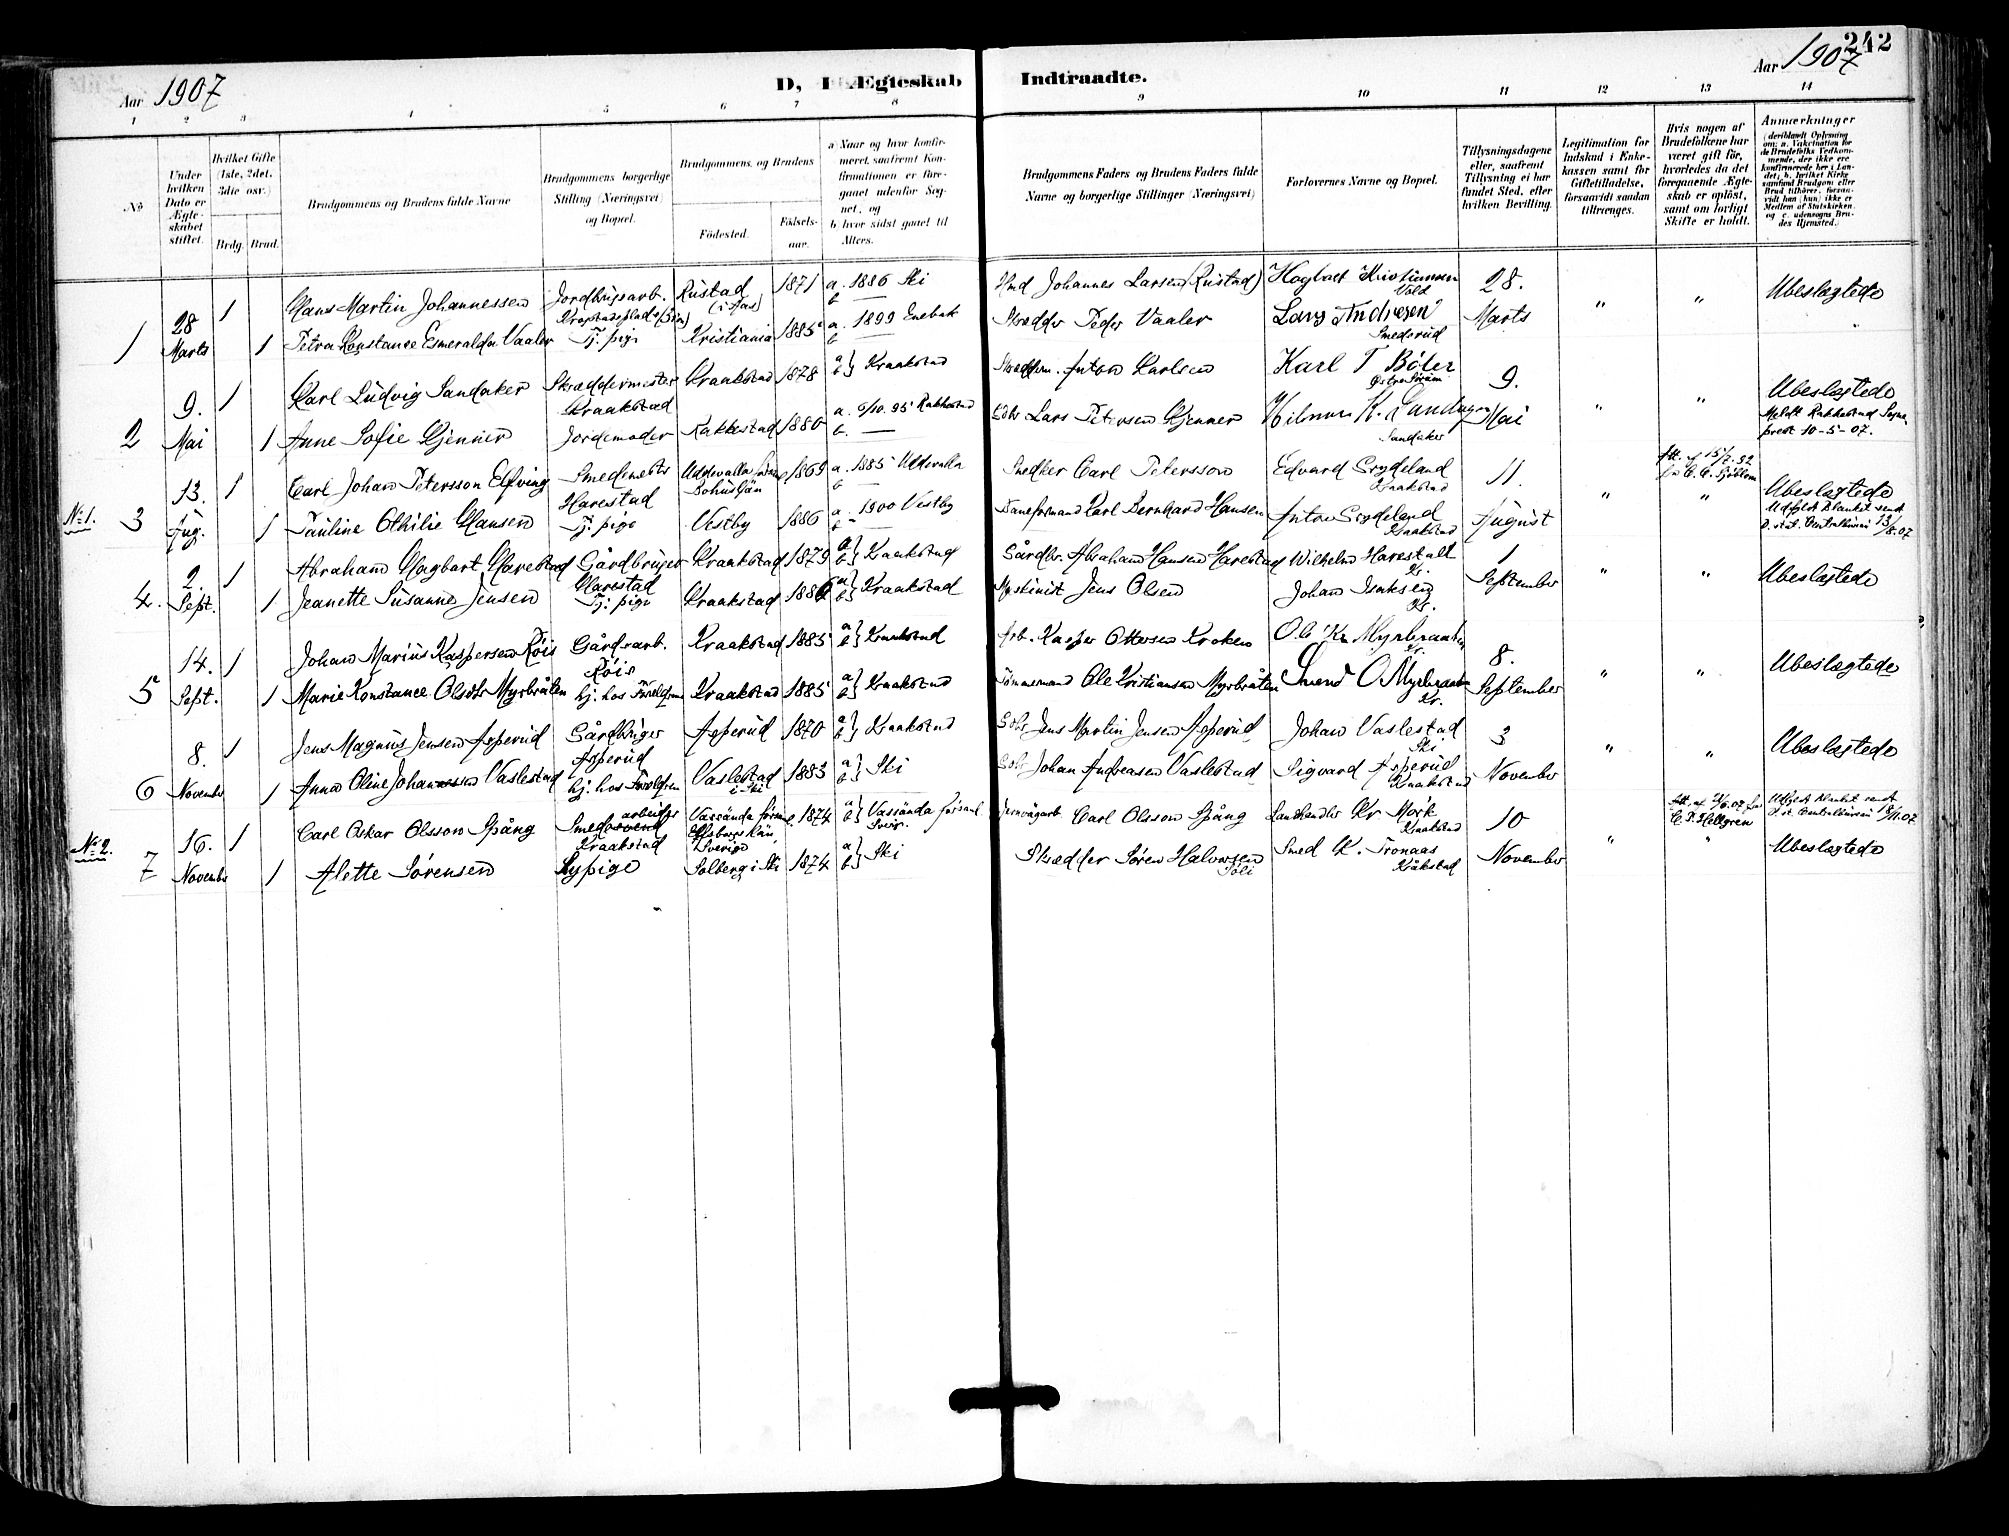 Aar 1907
D, I Ægteskab
Indtraadte.
242
Aar 1907
1 2 3 4 5 6 7 8 9 10 11 12 13 14
No
Under hvilken Dato er Ægteskabet stiftet.
Hvilket Gifte (1ste, 2det, 3die osv.)
Brdg. Brud.
Brudgommens og Brudens fulde Navne
Brudgommens borgerlige Stilling (Næringsvei) og Bopæl.
Brudgommens og Brudens
Fødested.
Fødselsaar.
a Naar og hvor konfirmeret, saafremt Konfirmationen er foregaaet udenfor Sognet, og
b hvor sidst gaaet til Alters.
Brudgommens Faders og Brudens Faders fulde Navne og borgerlige Stillinger (Næringsvei)
Forlovernes Navne og Bopæl.
Tillysningsdagene eller, saafremt Tillysning ei har fundet Sted, efter hvilken Bevilling.
Legitimation for Indskud i Enkekassen samt for Giftetilladelse, forsaavidt saadan tiltrænges.
Hvis nogen af Brudefolkene har været gift før, hvorledes da det foregaaende Ægteskab er opløst, samt om lovligt Skifte er holdt.
Anmærkninger
1 28 Marts 1 Hans Martin Johannessen Jordbrugsarb. Rustad (i Aas) 1871 a. 1886 Ski b. — Johannes Larsen (Rustad) Hagbart Kristiansen Vold 28. Marts " " Ubeslægtede
1 Petra Konstance Esmeralda Vaaler Tj. pige Kristiania 1885 a. 1899 Enebak b. — Skrædder Peder Vaaler Lars Andresen Smedsrud
2 9. Mai 1 Karl Ludvig Sandaker Skræddermester Kraakstad Kraakstad 1878 a b} Kraakstad Anton Karlsen Karl T Bøler 9. Mai " " Ubeslægtede
1 Anne Sofie Gjenner Jordemoder Rakkestad 1880 a. 9/10. 95 Rakkestad b. — Lars Petersen Gjenner Sandaker Meldt Rakkestad Sogneprest 10-5-07.
No 1. 3 13. Aug. 1 Carl Johan Petersson Elfving Smedmester Harestad Uddevalla Bohuslän 1869 a. 1885 Uddevalla b — Snedker Carl Petersson Edvard Grydeland Kraakstad 11. August " " Ubeslægtede
1 Pauline Othilie Hansen Tj. pige Vestby 1886 a. 1900 Vestby b — Baneformand Karl Bernhard Hansen Anton Grydeland Kraakstad Udfyldt Blanket sendt D. stat. Centralbureau 13/8.07
4. 2. Sept. 1 Abraham Hagbart Harestad Gårdbruger Harestad Kraakstad 1879 a b} Kraakstad Gårdbr. Abraham Hansen Harestad Wilhelm Harestad Kr. 1 September " " Ubeslægtede
1 Jeanette Susanne Jensen Tj. pige Kraakstad 1886 a b} Kraakstad Maskinist Jens Olsen Johan Isaksen Kr.
5 14. Sept. 1 Johan Marius Kaspersen Röis Gårdarb. Röis Kraakstad 1885 a b} Kraakstad Arb. Kasper Ottersen Kroken Ole Kr Myrbraaten Kr. 8. September " " Ubeslægtede
1 Marie Konstance Olsdtr Myrbråten hj. hos Foreldrene Kraakstad 1885 a b} Kraakstad Tømmermand Ole Kristiansen Myrbråten Svend O Myrbraaten Kr.
6 8. November 1 Jens Magnus Jensen Asperud Gårdbruger Asperud Asperud 1870 a b} Kraakstad Gbr. Jens Martin Jensen Asperud Johan Vaslestad Ski 3 November " " Ubeslægtede
1 Anna Oline Johannessen Vaslestad hj. hos Foreldrene Vaslestad i Ski 1883 a b} Ski Gbr. Johan Andreasen Vaslestad Sigvard Asperud Kraakstad
No 2. 7 16. November 1 Carl Oskar Olsson Spång Smedarbeider Kraakstad Vassända Elfsborgs län Sverige 1874 a b} Vassända Sverg. Jernvägarb Carl Olsson Spång Landhandler Kr Mørk Kraakstad 10 November " " Udfyldt Blanket sendt D. st. Centralbureau 18/11.07 Ubeslægtede
1 Alette Sørensen Sypige Solberg i Ski 1874 a b} Ski Skrædder Søren Halvorsen Smed K. Tronaas Kråkstad